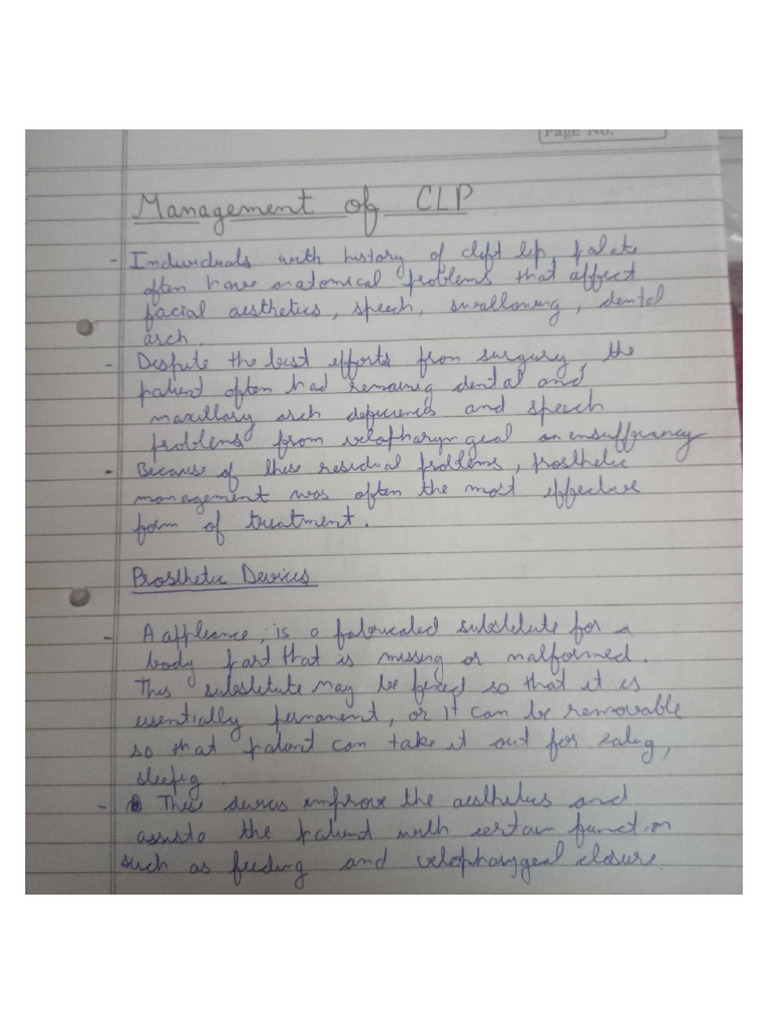 Page No.
Management of CLP
- Individuals with history of cleft lip, palate
often have anatomical problems that affect
facial aesthetics, speech, swallowing, dental
arch.
- Despite the best efforts from surgery, the
patient often had remaing dental and
maxillary arch deficiencies and speech
problems from velopharyngeal an ensufficiency
- Because of these residual problems, prosthetic
management was often the most effective
form of treatment.
Prosthetic Devices
- A appliance, is a fabricated substitute for a
body part that is missing or malformed.
This substitute may be fixed so that it is
essentially permanent, or it can be removable
so that patient can take it out for eatig,
sleepig.
- These devices improve the aesthetics and
assists the patient with certain function
such as feeding and velopharyngeal closure